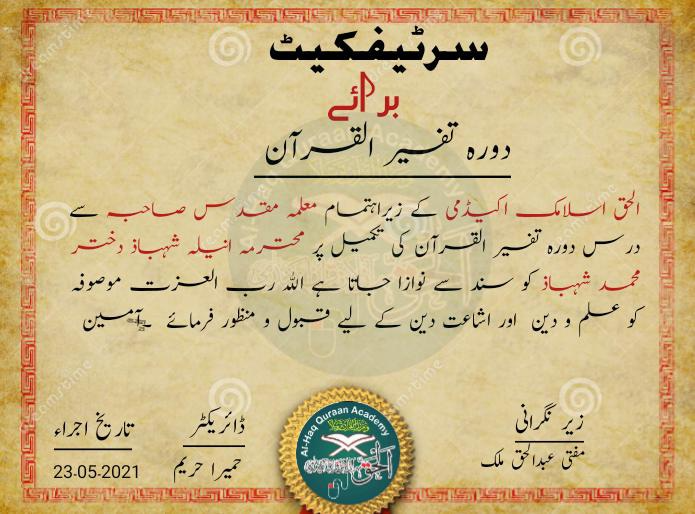 سرٹیفکیٹ
برائے
دورہ تفسیر القرآن
الحق اسلامک اکیڈمی کے زیراہتمام معلمہ مقدس صاحبہ سے
درس دورہ تفسیر القرآن کی تکمیل پر محترمہ انیلہ شہباز دختر
محمد شہباز کو سند سے نوازا جاتا ہے اللہ رب العزت موصوفہ
کو علم و دین اور اشاعت دین کے لیے قبول و منظور فرمائے ۔آمین
زیر نگرانی
مفتی عبدالحق ملک
ڈائریکٹر
حمیرا حریم
تاریخ اجراء
23-05-2021
Al-Haq Quraan Academy
الحق